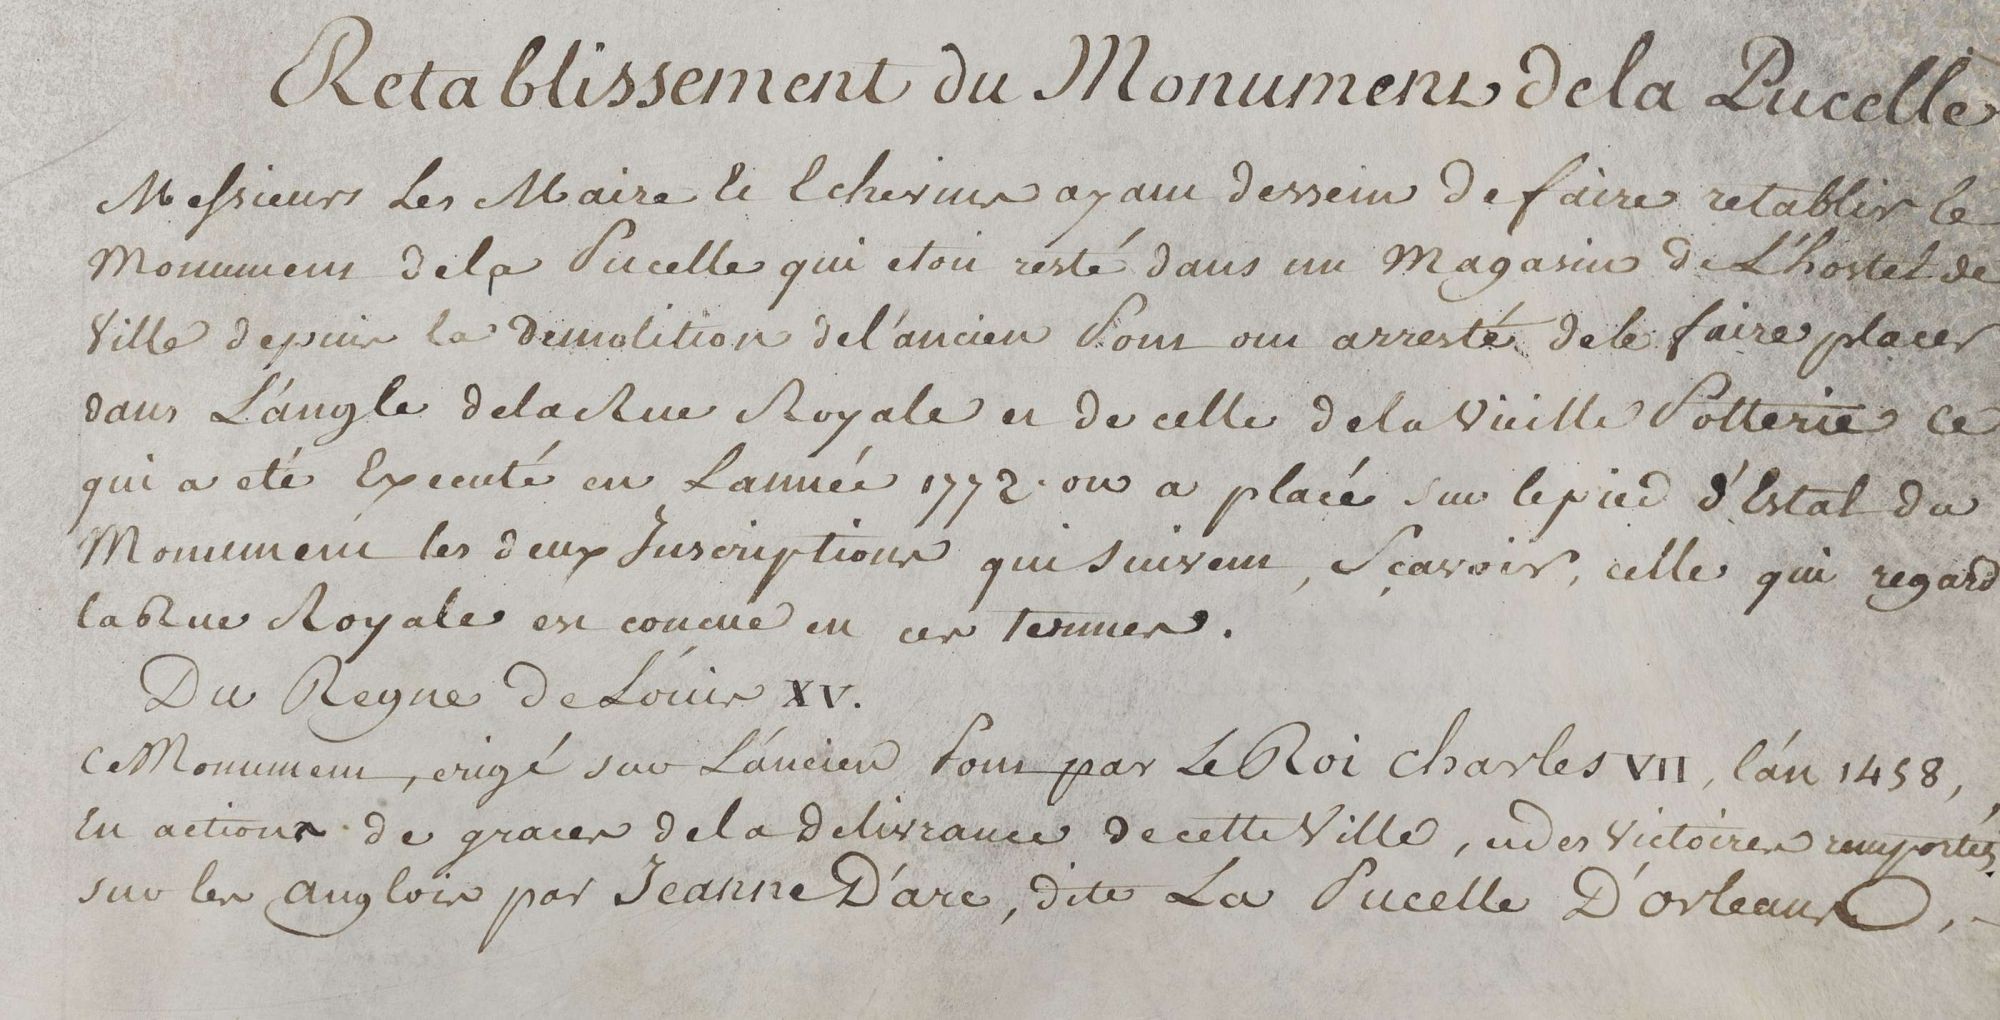 Retablissement du Monument dela Pucelle
Messieurs Les Maire et Echevins ayant dessein de faire retablir le
Monument dela Pucelle qui etoit resté dans un Magasin de L'hostel de
Ville depuis la demolition del'ancien Pont ont arresté dele faire placer
dans L'angle dela Rue Royale et de celle dela Vieille Potterie ce
qui a eté Executé en Lannée 1772. on a placé sur lepied d'Estal du
Monument les deux Inscriptions qui suivent, Sçavoir, celle qui regard
la Rue Royale est concue en ces termes.
Du Regne de Loüis XV.
Ce Monument, erigé sur L'ancien Pont par Le Roi Charles VII, l'an 1458,
En actions de graces dela delivrance de cette Ville, et des Victoires remportés
sur les anglois par Jeanne D'arc, dite La Pucelle D'orleans,